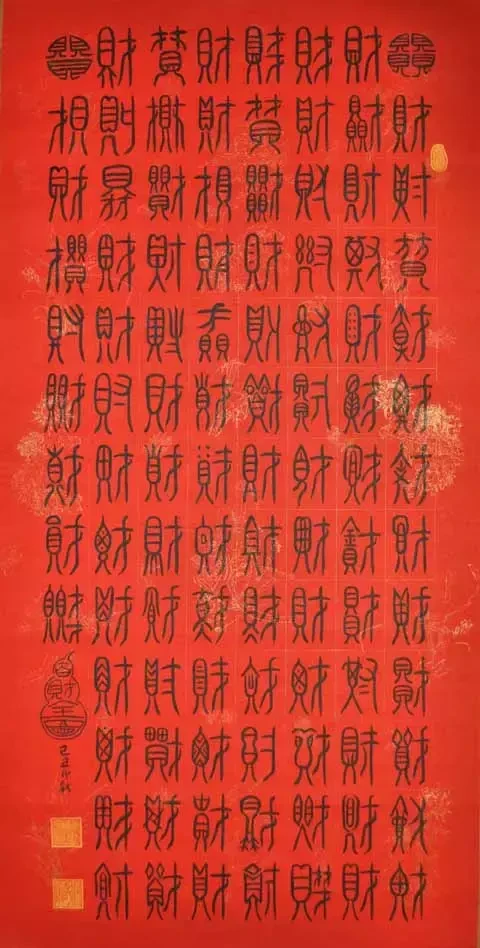 財財財財財財財財財財財財財
財財財財財財財財財財財財財
財財財財財財財財財財財財財
財財財財財財財財財財財財財
財財財財財財財財財財財財財
財財財財財財財財財財財財財
財財財財財財財財財財財財財
財財財財財財財財財
百財
己丑仲秋